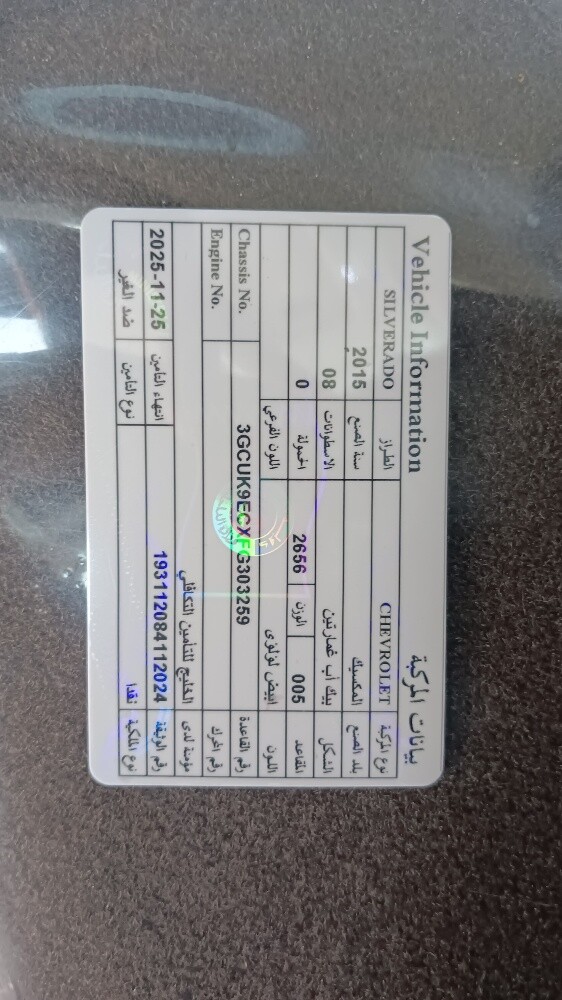 Vehicle Information بيانات المركبة
نوع المركبة CHEVROLET الطراز SILVERADO
بلد الصنع المكسيك سنة الصنع 2015
الشكل بيك أب غمارتين الاسطوانات 08
المقاعد 005 الوزن 2656 الحمولة 0
اللون ابيض لؤلؤي اللون الفرعي
رقم القاعدة 3GCUK9ECXFG303259 Chassis No.
رقم المحرك Engine No.
مؤمنة لدى الخليج للتأمين التكافلي
رقم الوثيقة 193112084112024 انتهاء التامين 2025-11-25
نوع الملكية نقدا نوع التامين ضد الغير